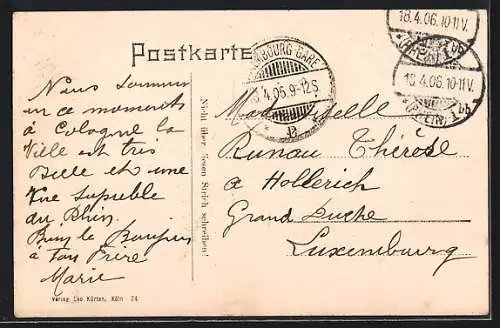 18.4.06.10-11V.
Postkarte
LUXEMBOURG-GARE
18.4.06.10-11V.
(RHEIN) 1 bh
18.4.06.9-12S.
B
Nous sommes
en ce moments
à Cologne la
Ville est très
Belle et une
Vue Superble
du Rhin.
Bien le Bonjour
à ton Frère
Marie
Nicht über diesen Strich schreiben!
Mademoiselle
Runau Thérèse
à Hollerich
Grand Duche
Luxembourg
Verlag Leo Kürten, Köln 74